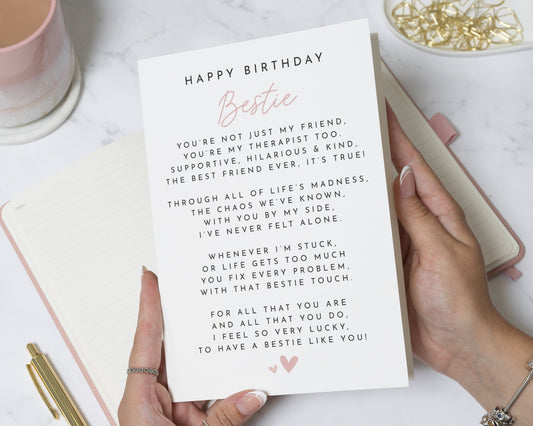 HAPPY BIRTHDAY
Bestie
YOU'RE NOT JUST MY FRIEND,
YOU'RE MY THERAPIST TOO.
SUPPORTIVE, HILARIOUS & KIND,
THE BEST FRIEND EVER, IT'S TRUE!
THROUGH ALL OF LIFE'S MADNESS,
THE CHAOS WE'VE KNOWN,
WITH YOU BY MY SIDE,
I'VE NEVER FELT ALONE.
WHENEVER I'M STUCK,
OR LIFE GETS TOO MUCH
YOU FIX EVERY PROBLEM,
WITH THAT BESTIE TOUCH.
FOR ALL THAT YOU ARE
AND ALL THAT YOU DO,
I FEEL SO VERY LUCKY,
TO HAVE A BESTIE LIKE YOU!